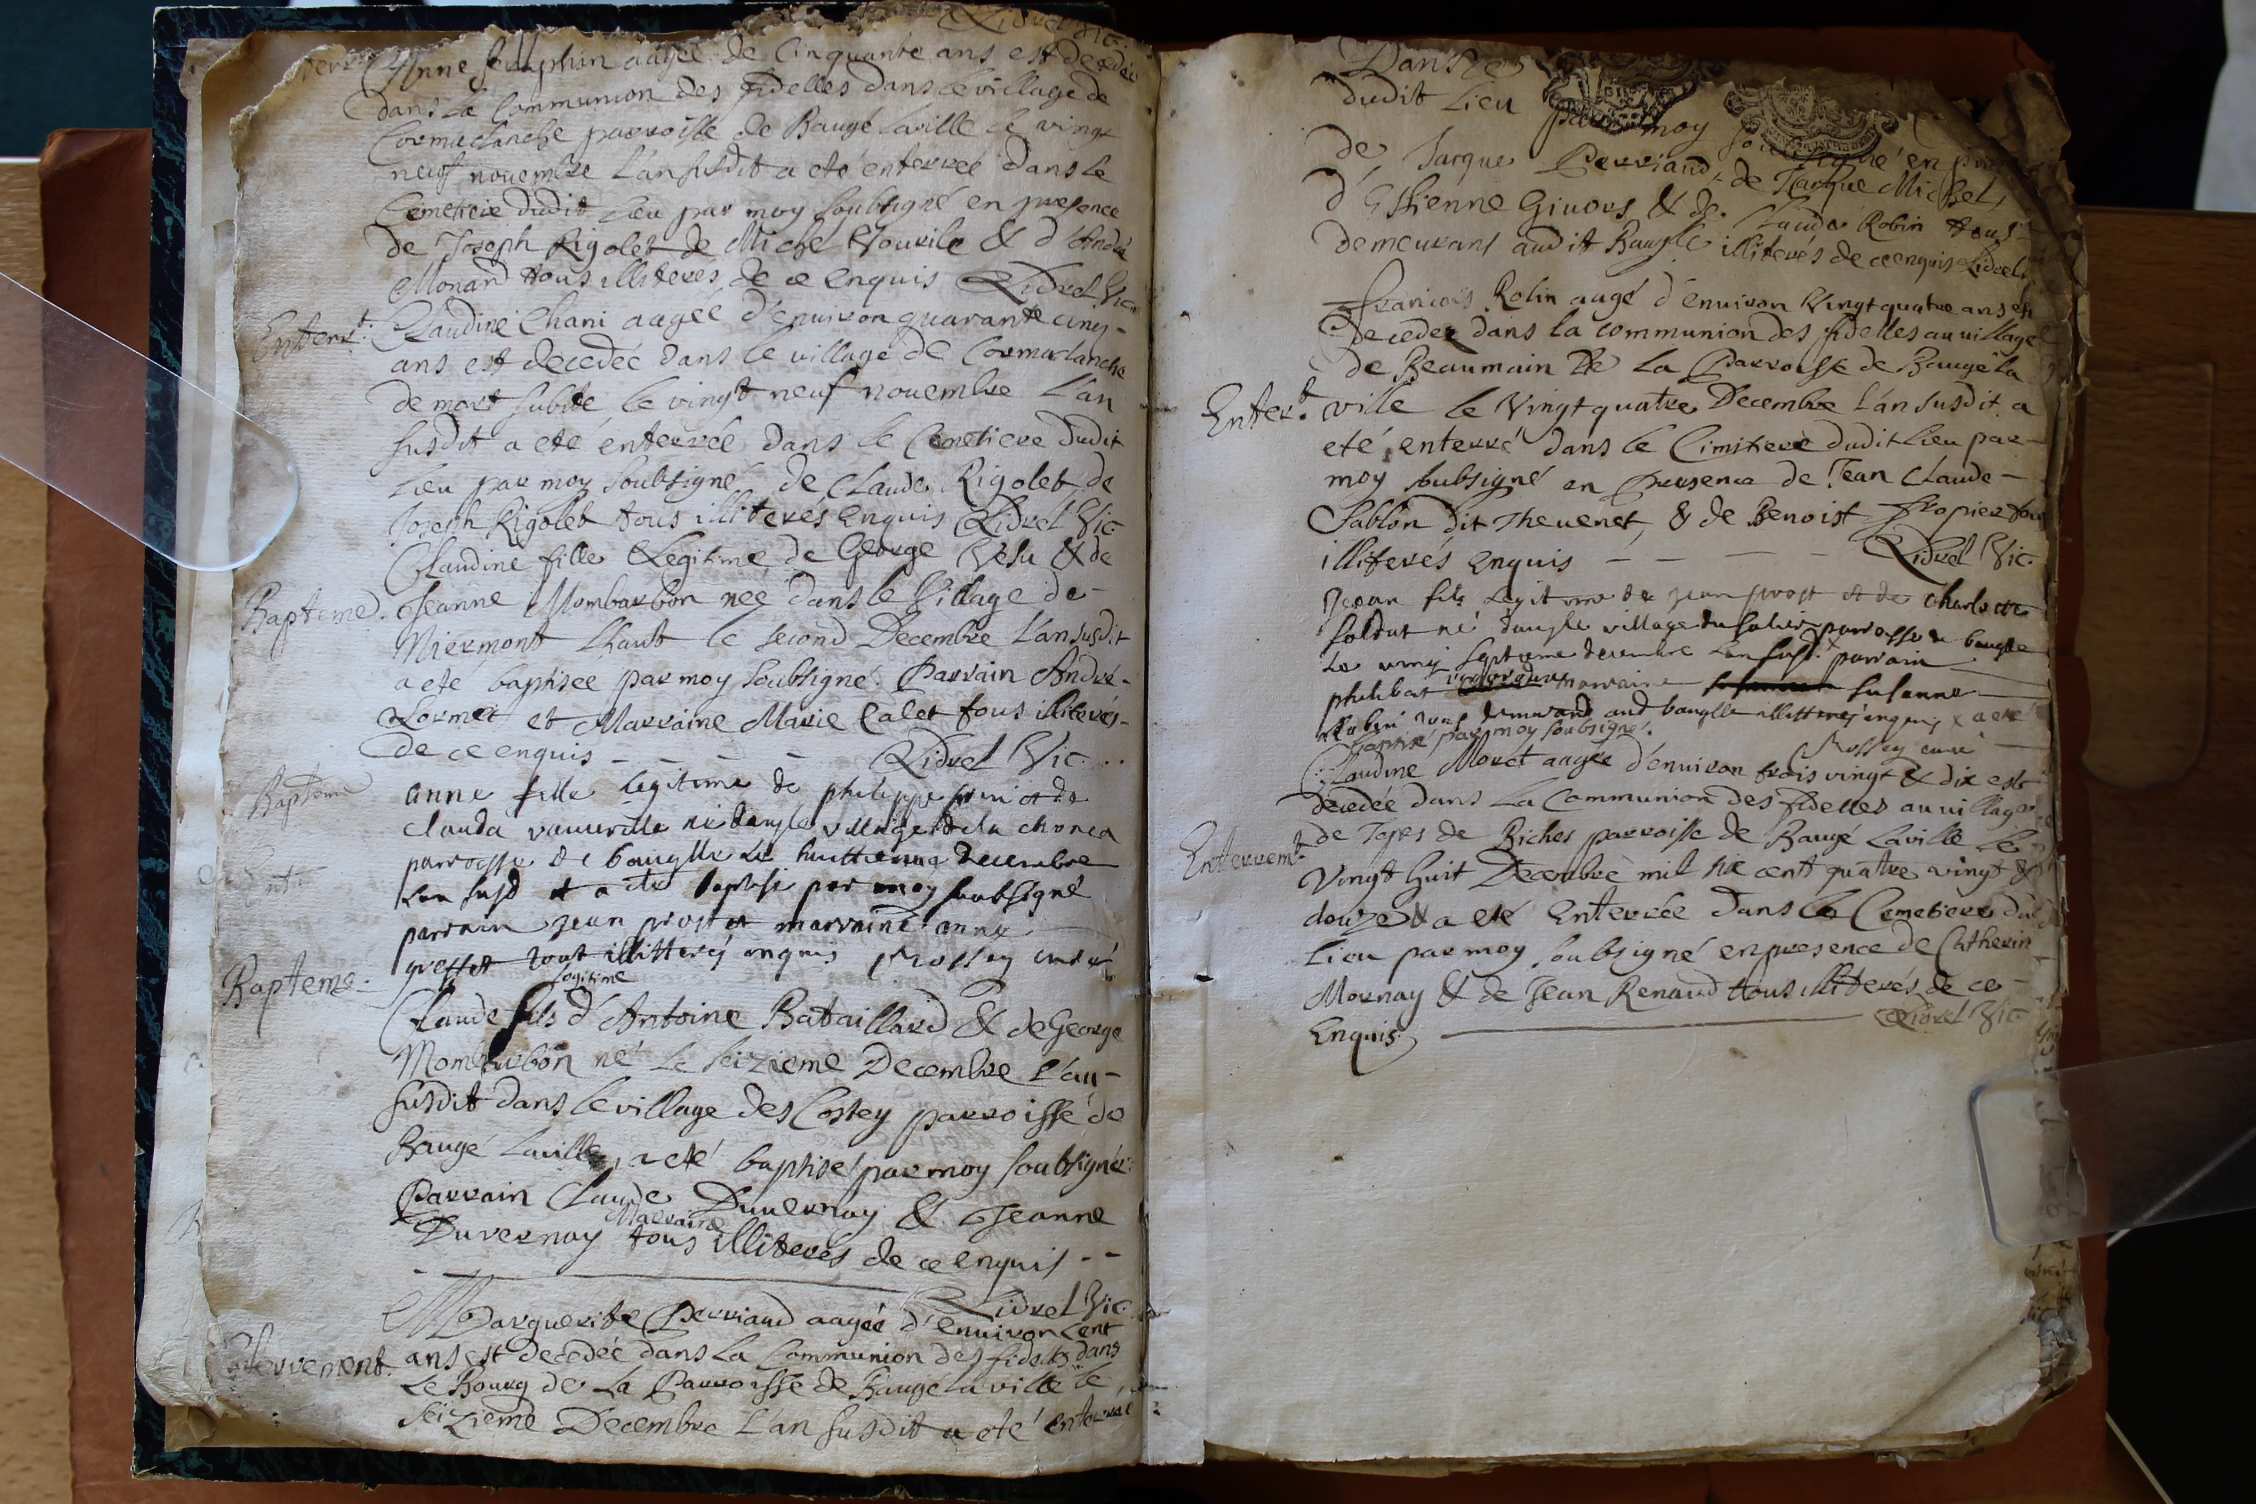 Lidrel Vic.
Anne Seraphin aagée de Cinquante ans est decedée
dans la Communion des fidelles dans le village de
Cormarlanche parroisse de Baugé Laville le vingt
neuf novembre L'an susdit a eté enterrée dans le
Cemetiere dudit lieu par moy soubsigné en presence
de Joseph Rigolet de Michel Vourile & d'André
Monard tous illiteres, de ce enquis Lidrel Vic.
Enterrt. Claudine Chani aagée d'environ quarante cinq
ans est decedée dans le village de Cormarlanche
de mort subite le vingt neuf novembre L'an
susdit a eté enterrée dans le Cemetiere dudit
Lieu par moy soubsigné de Claude Rigolet de
Joseph Rigolet tous illiteres enquis Lidrel Vic
Claudine fille Legitime de George Vesu & de
Bapteme. Jeanne Mombarbon neé dans le Village de
Niermont Lhaut le second Decembre L'an susdit
a eté baptisée par moy soubsigné. Parrain André
Lormet et Marraine Marie Calet tous illiterés
de ce enquis - - - Lidrel Vic.
Bapteme anne fille legitime de philippe et de
clauda
parroisse de bauglle le huittieme decembre
Lan susd et a ete baptisé par moy soubsigné
parrain jean prost et marraine anne
tout illitteréz enquis Mossey curé
legitime
Bapteme Claude fils d'Antoine Bataillard & de George
Mombarbon né le seizieme Decembre L'an
susdit dans le village des Costey parroisse de
Baugé Laville, a eté baptisé par moy soubsigné.
Parrain Claude Duvernay & Jeanne
Marraine
Duvernay tous illiterés de ce enquis - -
Lidrel Vic
Marguerite Perriaud aagée d'environ Cent
Enterrement. ans est decedée dans la Communion des fideles dans
Le Bourg de La Parroisse de Baugé la ville le
seizieme Decembre L'an susdit a eté enterrée
Dans le
dudit Lieu par moy soubsigné en
de Jarque Perriaud, de Jarque Michel,
d'Estienne Givors & de Claude Robin tous
demeurans audit Baugle illiterés de ce enquis Lidrel
Francois Rolin aagé d'environ Vingt quatre ans est
Decedez dans la communion des fidelles au village
de Beaumain De La Parroisse de Baugé la
Enterrt. ville le Vingt quatre Decembre L'an susdit a
eté enterré dans le Cimitiere dudit Lieu par
moy soubsigné en Presence de Jean Claude
Sablon dit Thevenet, & de Benoist Fropier tous
illiterés enquis - - - - Lidrel Vic.
Jean fils legitime de jean prost et de charlotte
soldat né village du parroisse de baugle
Le vint septieme decembre Lan susd. parrain
philibert marraine susanne
Robin tous demurand aud bauglle illitteréz enquis x a eté
baptisé par moy soubsigné. Mossey curé
Claudine Moret aagée d'environ trois vingt & dix est
decedée dans La Communion des fidelles au village
Enterremt. de Topes de Riches parroisse de Baugé Laville le
Vingt huit Decembre mil six cent quatre vingt &
douze & a eté Enterrée dans le Cemetiere dud
Lieu par moy soubsigné en presence de Catherin
Mornay & de Jean Renaud tous illiterés de ce
Enquis. Lidrel Vic